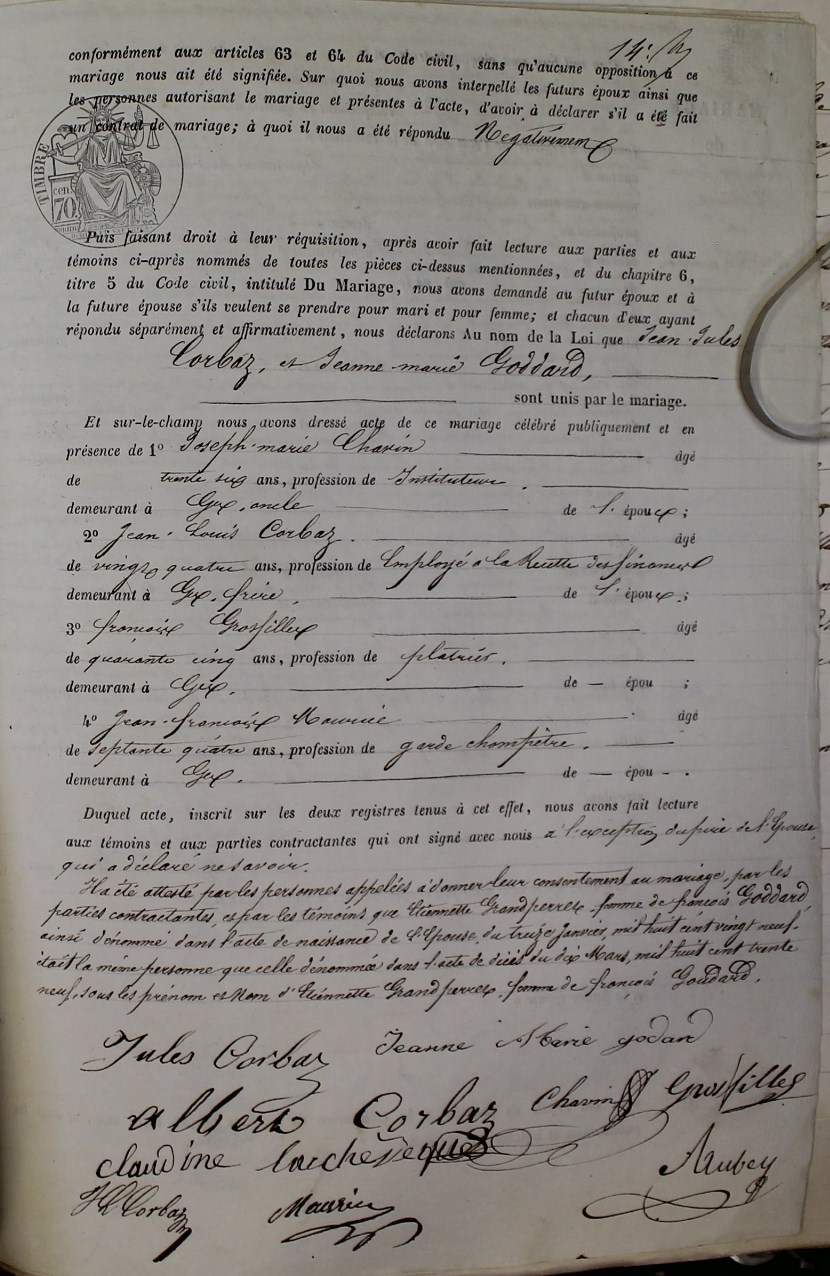 14e
conformément aux articles 63 et 64 du Code civil, sans qu'aucune opposition à ce
mariage nous ait été signifiée. Sur quoi nous avons interpellé les futurs époux ainsi que
les personnes autorisant le mariage et présentes à l'acte, d'avoir à déclarer s'il a été fait
un contrat de mariage; à quoi il nous a été répondu Négativement
TIMBRE
cen.
70
Puis faisant droit à leur réquisition, après avoir fait lecture aux parties et aux
témoins ci-après nommés de toutes les pièces ci-dessus mentionnées, et du chapitre 6,
titre 5 du Code civil, intitulé Du Mariage, nous avons demandé au futur époux et à
la future épouse s'ils veulent se prendre pour mari et pour femme; et chacun d'eux ayant
répondu séparément et affirmativement, nous déclarons Au nom de la Loi que Jean-Jules
Corbaz, et Jeanne-marie Goddard,
sont unis par le mariage.
Et sur-le-champ nous avons dressé acte de ce mariage célébré publiquement et en
présence de 1o Joseph-marie Chavin âgé
de trente six ans, profession de Instituteur.
demeurant à Gex, oncle de l'épouse;
2o Jean-Louis Corbaz. âgé
de vingt quatre ans, profession de Employé à la Recette des finances
demeurant à Gex, frère, de l'époux;
3o francois Grosfillex âgé
de quarante cinq ans, profession de platrier.
demeurant à Gex. de — épou ;
4o Jean-francois Maurice âgé
de septante quatre ans, profession de garde champêtre.
demeurant à Gex. de — épou - .
Duquel acte, inscrit sur les deux registres tenus à cet effet, nous avons fait lecture
aux témoins et aux parties contractantes qui ont signé avec nous à l'exception du père de l'Epouse,
qui a déclaré ne savoir.
Il a été attesté par les personnes appelées à donner leur consentement au mariage, par les
parties contractantes, et par les témoins que Etiennette Grandperrex, femme de françois Goddard,
ainsi dénommé dans l'acte de naissance de l'Epouse, du treize Janvier, mil huit cent vingt neuf.
était la même personne que celle dénommée dans l'acte de décès du dix Mars, mil huit cent trente
neuf, sous les prénom et Nom d'Etiennette Grandperrex, femme de françois Goudard.
Jules Corbaz Jeanne Marie godard
Albert Corbaz Chavin Grosfillex
claudine
JL Corbaz Maurice Aubey